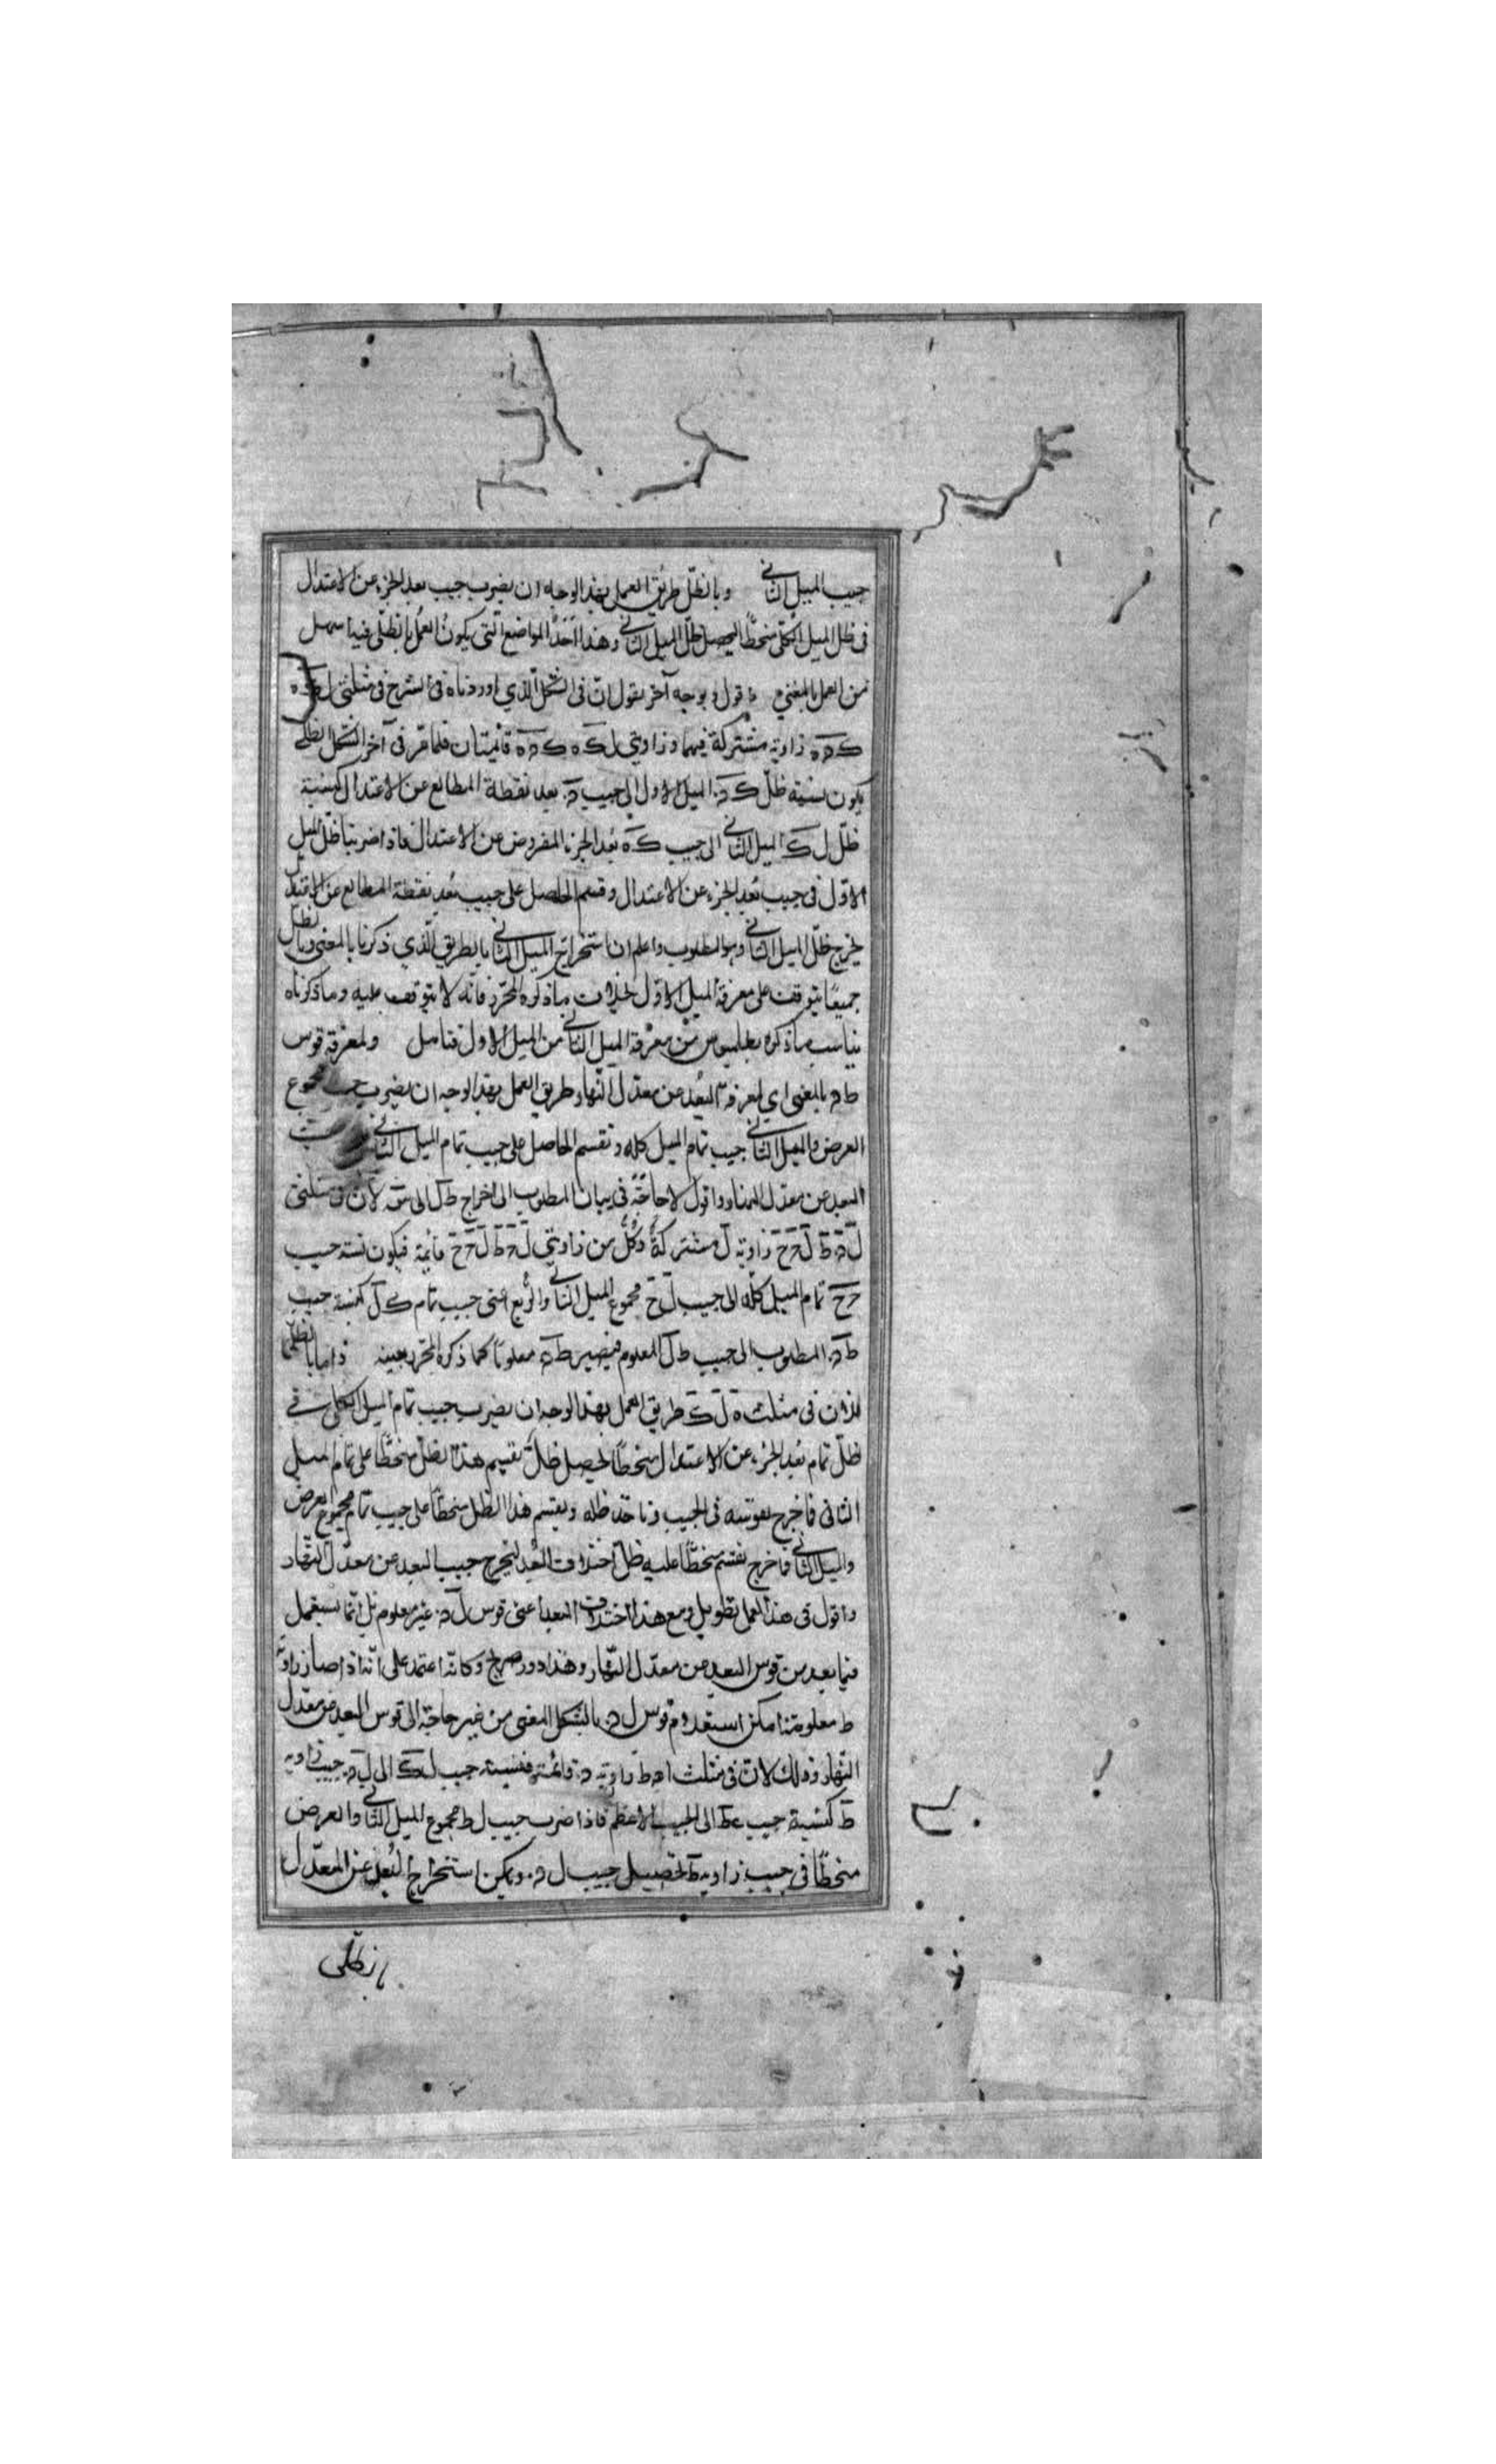 جيب الميل الثانى وبالظلّ طريق العمل بهذا الوجه ان يضرب جيب بعد الجزء عن الاعتدال
فى ظل الميل الكلّى منحطًّا ليحصل ظلّ الميل الثانى وهذا احَدُ المواضع الّتى يكون العمل بالظلّى فيها اسهل
من العمل بالمغنى واقول وبوجه آخر نقول انّ فى الشكل الّذي اوردناه فى الشرح فى مثلثى
زاوية مشتركة فيهما وزاويتي قائمتان فلما مرّ فى آخر الشكل الظلّى
يكون نسبة ظلّ الميل الاول الى جيب بعد نقطة المطالع عن الاعتدال كنسبة
ظلّ ل ك الميل الثانى الى جيب ك ه بُعد الجزء المفروض عن الاعتدال فاذا ضربنا ظلّ الميل
الاوّل فى جيب بُعد الجزء عن الاعتدال وقسم الحاصل على جيب بُعد نقطة المطالع عن الاعتدال
يخرج ظلّ الميل الثانى وهو المطلوب واعلم ان استخراج الميل الثانى بالطريق الّذي ذكرنا بالمغنى وبالظلّى
جميعًا يتوقف على معرفة الميل الاوّل بخلاف ما ذكره المحرّر فانّه لا يتوقف عليه وما ذكرناه
يناسب ما ذكره بطلميوس من معرفة الميل الثانى من الميل الاول فتامل ولمعرفة قوس
بالمغنى اي لمعرفة البُعد عن معدّل النّهار طريق العمل بهذا الوجه ان يضرب جيب مجموع
العرض والميل الثانى جيب تمام الميل كله ونقسم الحاصل على جيب تمام الميل الثانى
البعد عن معدل النهار واقول لا حاجةً فى بيان المطلوب الى اخراج لان فى مثلثى
زاوية ل مشتركةٌ وكُلُّ من زاويتي قائمة فيكون نسبة جيب
تمام الميل كلّه الى جيب مجموع الميل الثانى والرّبع اعنى جيب تمام ك ل كنسبة جيب
المطلوب الى جيب ط ل المعلوم فيصير معلومًا كما ذكره المحرر بعينه واما بالظلّى
فلان فى مثلث طريق العمل بهذا الوجه ان يضرب جيب تمام الميل الكلى فى
ظلّ تمام بُعد الجزء عن الاعتدال منحطًّا ليحصل ظلّ نقسم هذا الظلّ منحطًّا على تمام الميل
الثانى فما خرج نقوّسه فى الجيب وناخذ ظله ونقسم هذا الظل منحطًّا على جيب تمام مجموع العرض
والميل الثانى فما خرج نقسم منحطًّا عليه ظلّ اختلاف البُعد ليخرج جيب البعد عن معدّل النّهار
واقول فى هذا العمل تطويل ومع هذا اختلاف البعد اعنى قوس غير معلوم بل انّما يستعمل
فيما بعد من قوس البعد عن معدّل النّهار وهذا دور صريح وكانّه اعتمد على انّه اذا صار زاوية
ط معلومة امكن استعلام قوس بالشكل المغنى من غير حاجة الى قوس البعد عن معدل
النّهار وذلك لانّ فى مثلث زاوية قائمة فنسبة جيب الى جيب زاوية
ط كنسبة جيب الى الجيب الاعظم فاذا ضرب جيب ل ط مجموع الميل الثانى والعرض
منحطًّا فى جيب زاوية ط لتحصيل جيب ويمكن استخراج البُعد عن المعدّل
بالظلّى